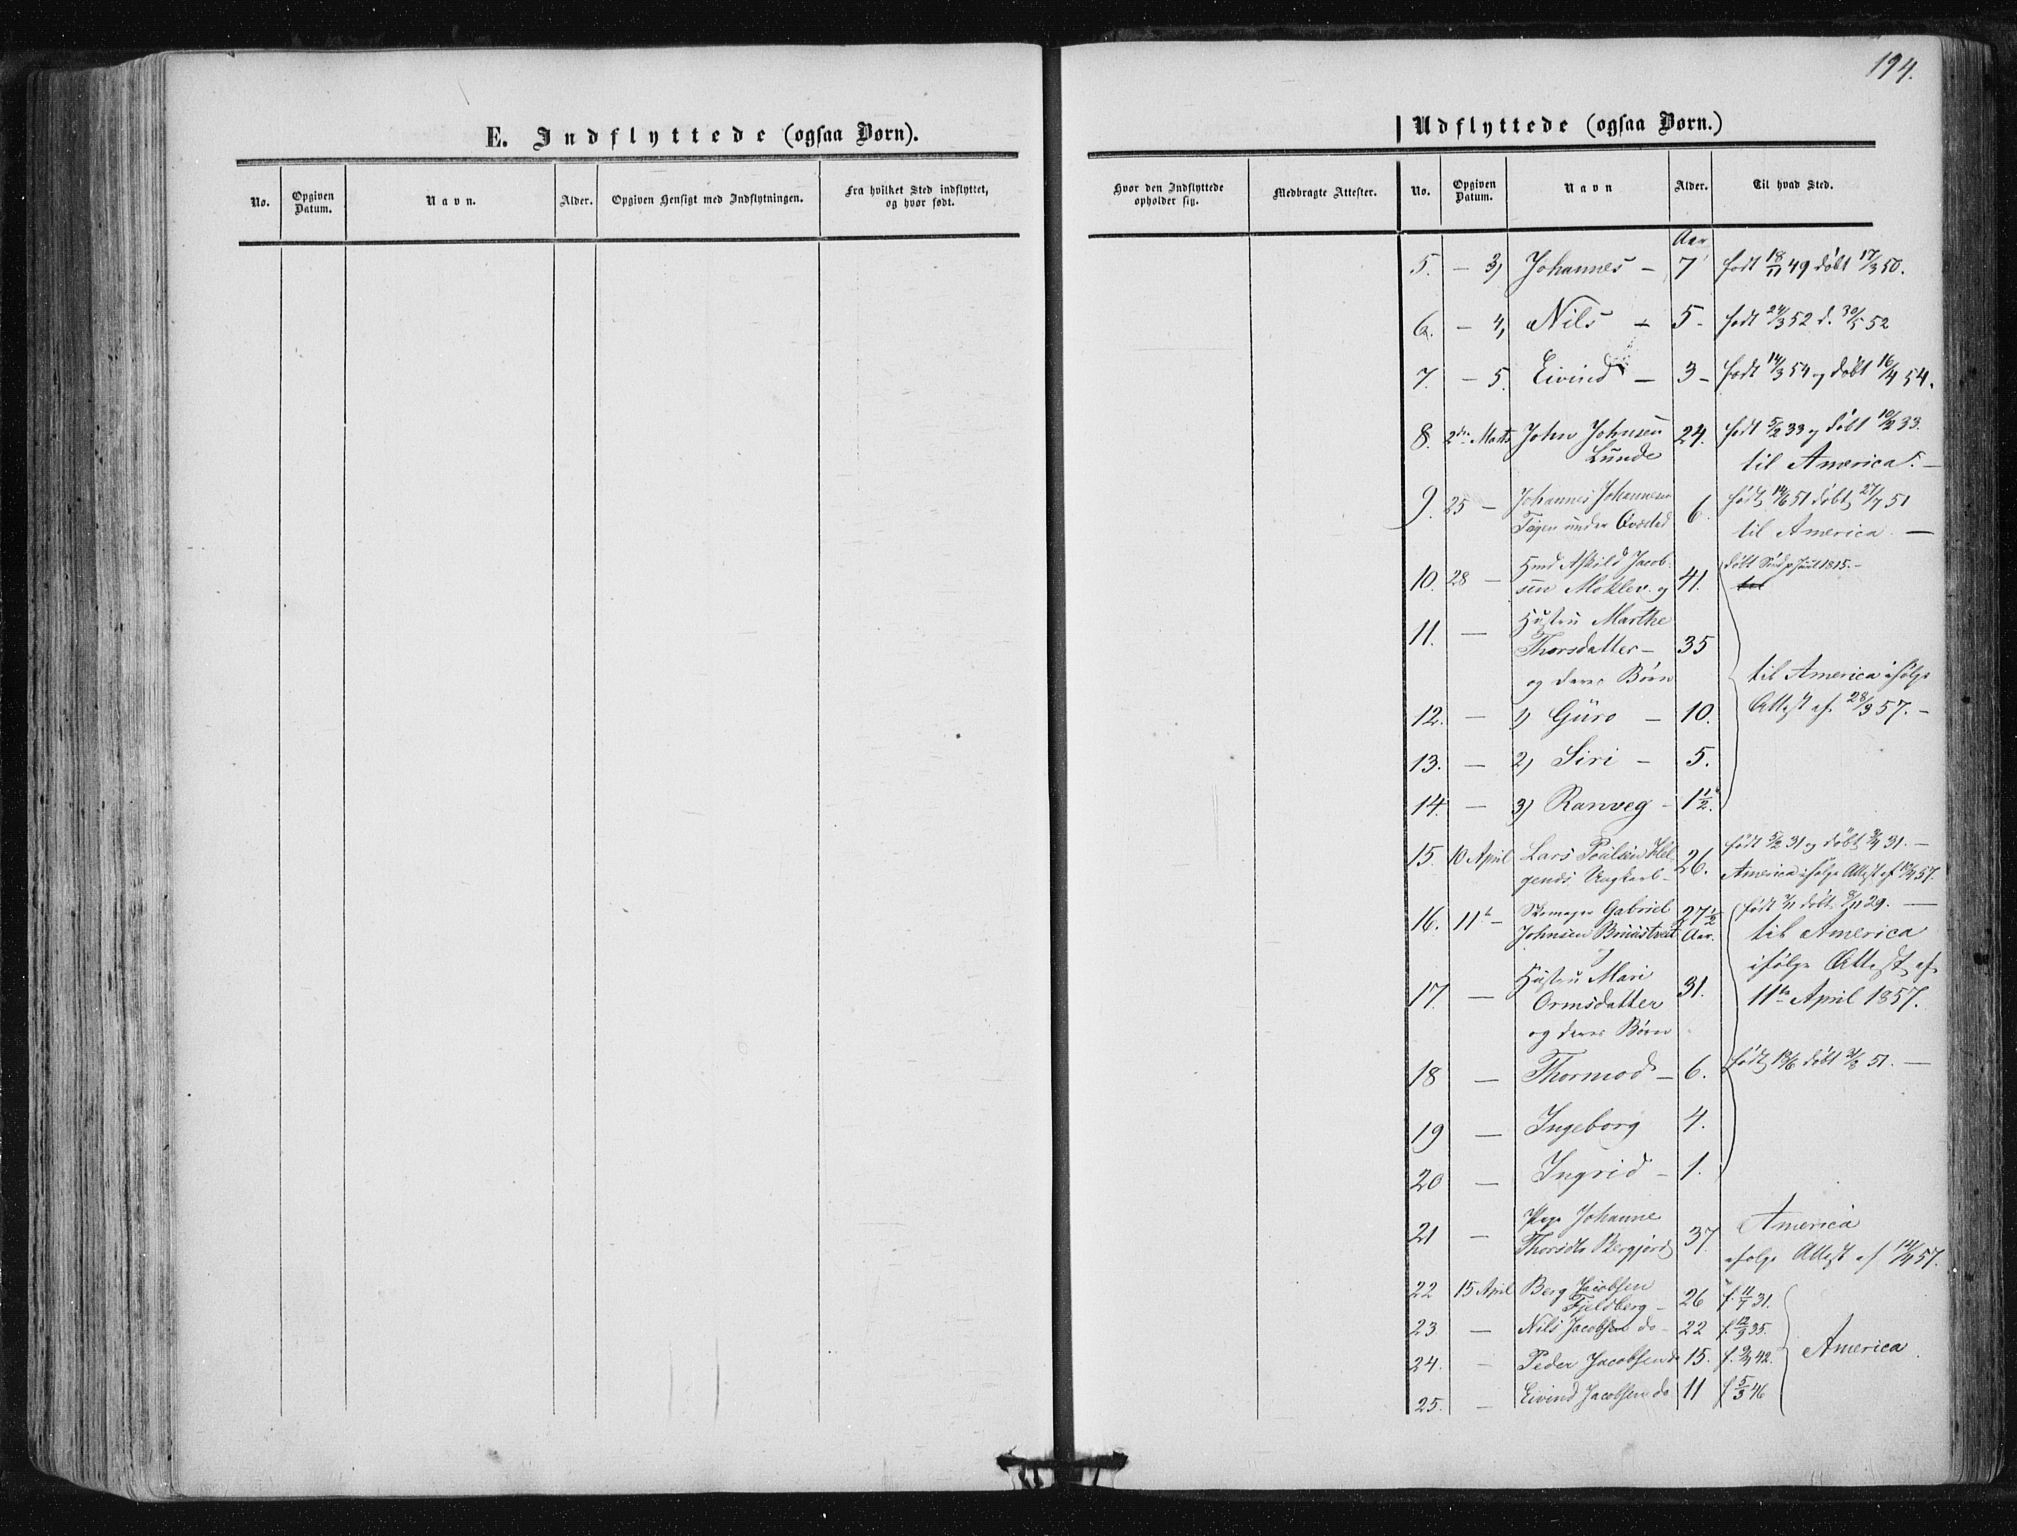 194.
E. Indflyttede (ogsaa Børn).
Udflyttede (ogsaa Børn.)
No.
Opgiven Datum.
Navn.
Alder.
Opgiven Hensigt med Indflytningen.
Fra hvilket Sted indflyttet, og hvor født.
Hvor den Indflyttede opholder sig.
Medbragte Attester.
No.
Opgiven Datum.
Navn
Alder.
Til hvad Sted.
Aar
5. — 3) Johannes — 7 født 18/11 49 døbt 17/3 50.
6. — 4, Nils — 5 — født 24/3 52 d. 30/5 52
7. — 5. Eivind — 3 — født 14/3 54 og døbt 16/4 54.
8. 2den Marts John Johnsen 24. født 5/2 33 og døbt 10/2 33.
Lunde til America. —
9. 25 — Johannes Johannesen 6. født 14/6 51 døbt 27/7 51
under til America. —
10. 28 — Askild Jacob- 41. døbt 1815. —
sen Moklev. og
11. — Hustru Marthe
Thorsdatter — 35
og deres Børn til America ifølge
12. — 1) Guro — 10. Attest af 28/3 57. —
13. — 2) Siri — 5.
14. — 3) Ranveg — 1½.
15. 10 April Lars Poulsen Hel- 26. født 5/2 31 og døbt 31. —
gends Ungkarl — America ifølge Attest af 10/4 57.
16. 11te — Skomager Gabriel 27½ født døbt 29. —
Johnsen Aar. til America
ifølge Attest af
17. — Hustru Mari 31.
Ormsdatter 11te April 1857.
og deres Børn
18 — Thormod — 6. født døbt 51. —
19 — Ingeborg 4.
20 — Ingrid — 1.
21 — Pige Johanne 37. America
Thorsdtr ifølge Attest af 14/4 57.
22 15 April Berg Jacobsen
Fjeldberg — 26 f. 11/7 31.
23 — Nils Jacobsen do — 22 f. 12/3 35.
24. — Peder Jacobsen do 15. f. 9/4 42. America
25. — Eivind Jacobsen do 11 f. 5/3 46